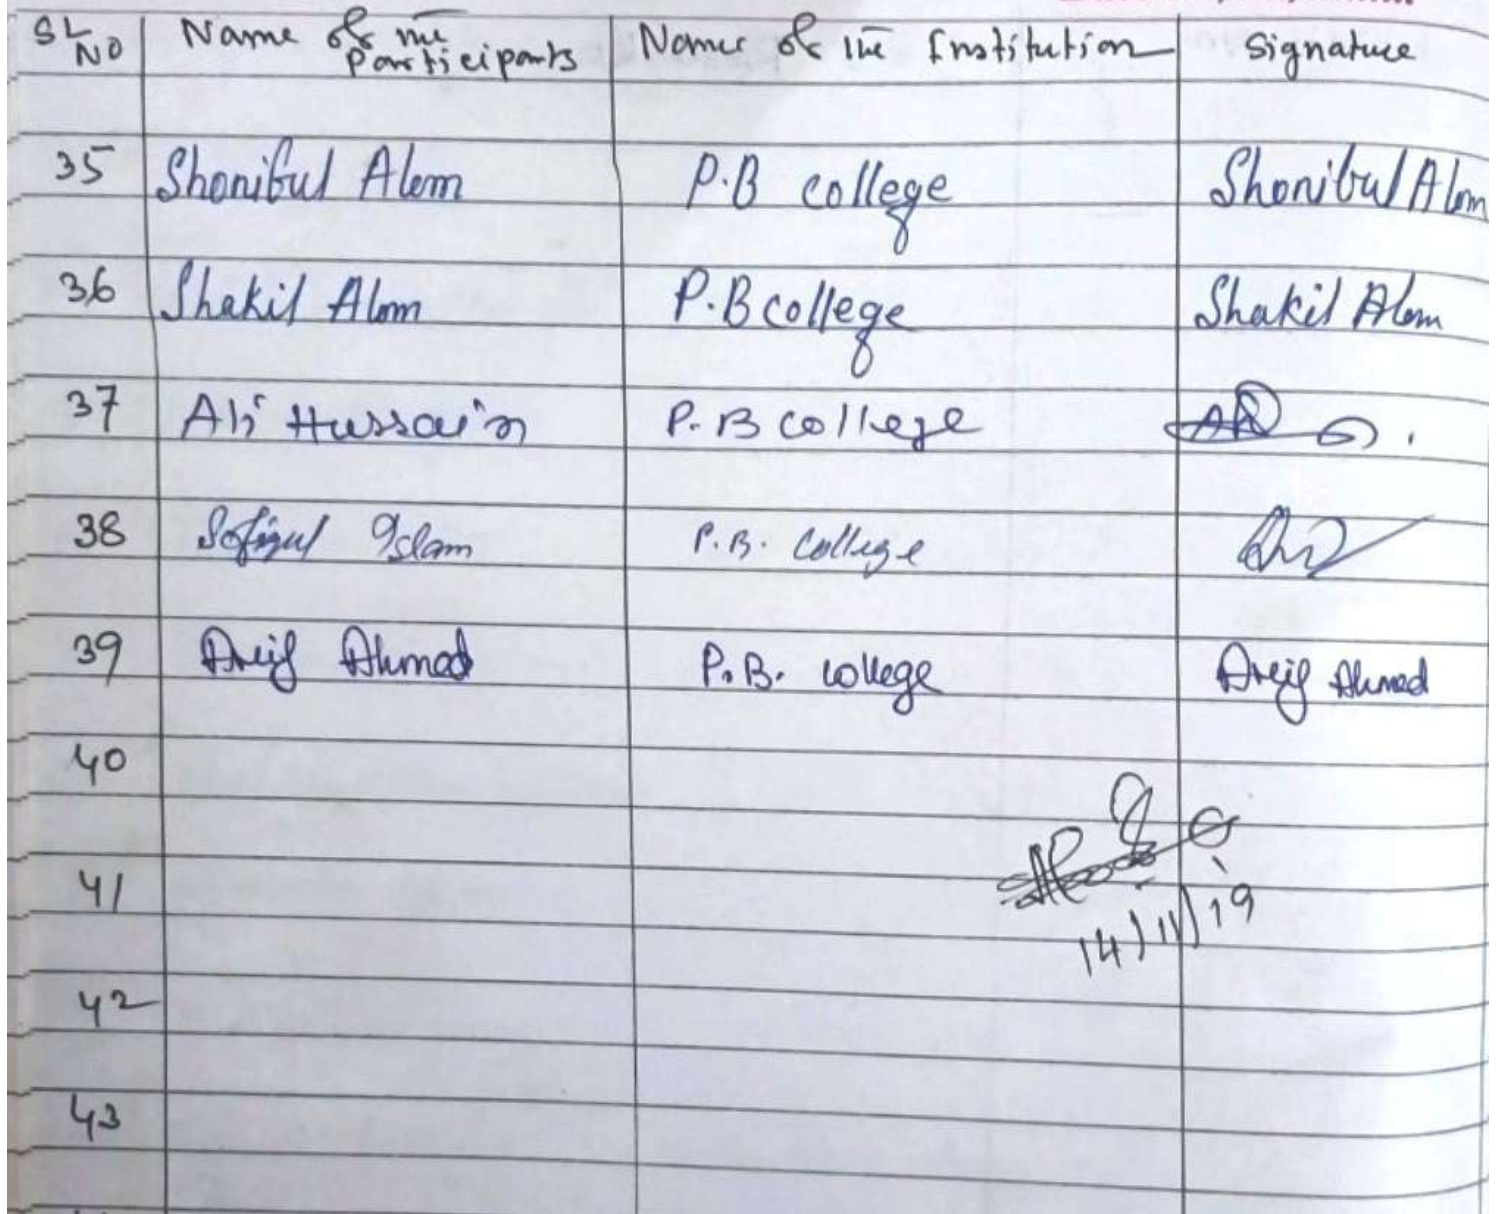 SL NO Name of the Participants Name of the Institution Signature
35 Shonibul Alom P.B college Shonibul Alom
36 Shakil Alom P.B college Shakil Alom
37 Ali Hussain P.B college
38 Sofiqul Islam P.B. College
39 Arif Ahmed P.B. college Arif Ahmed
40
41
14/11/19
42
43